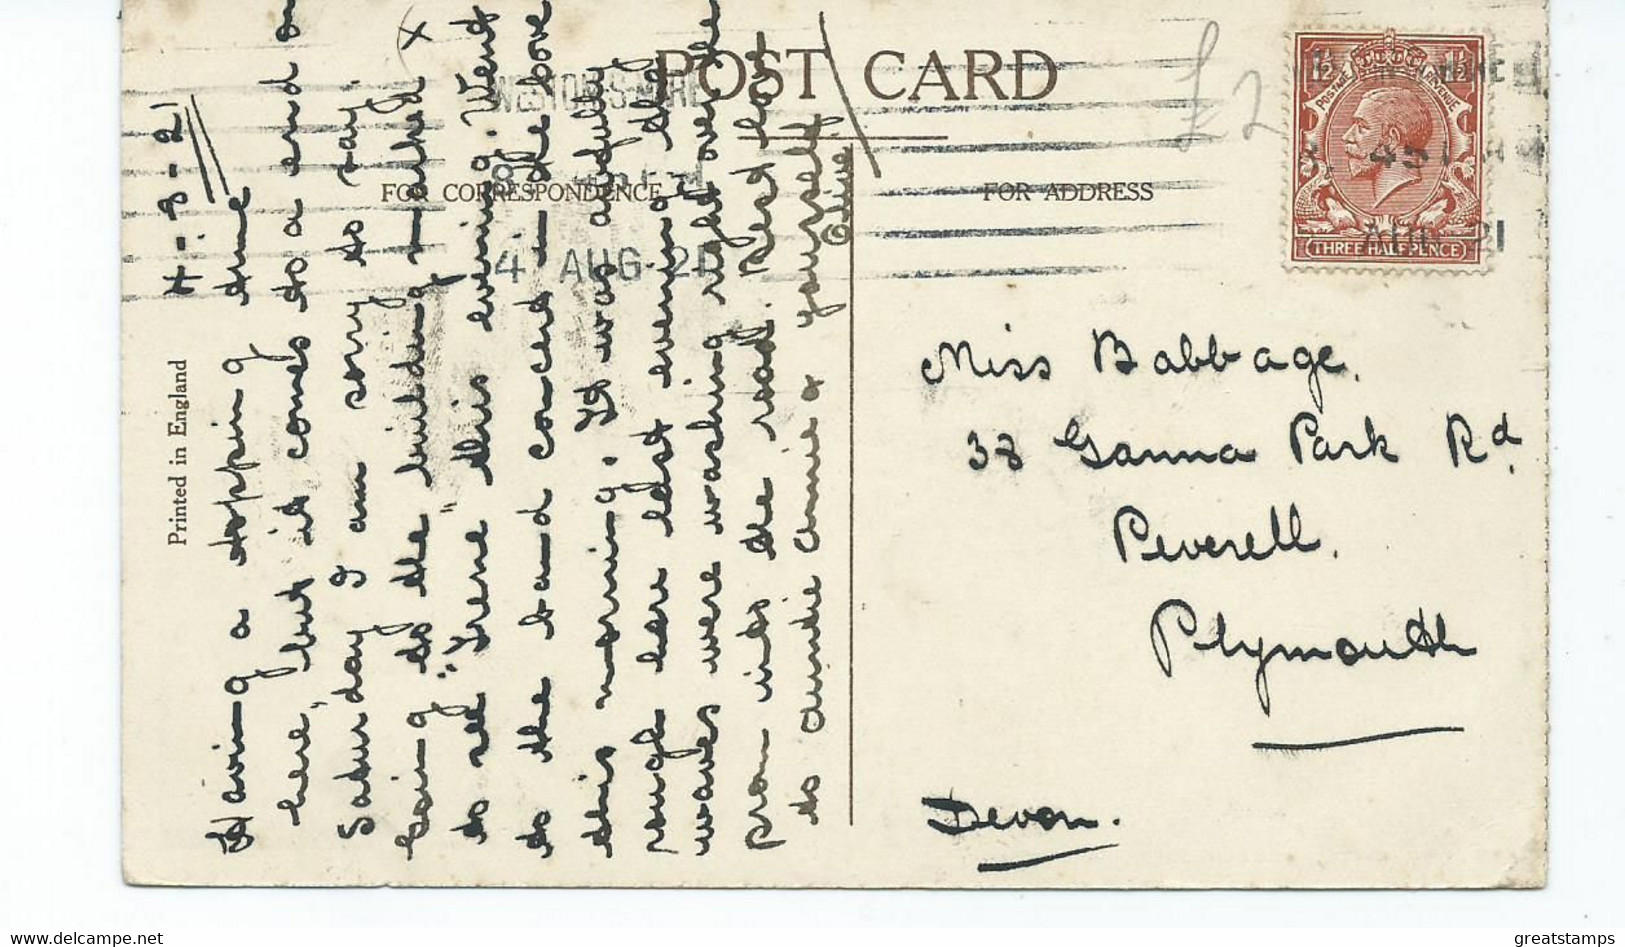 POST CARD
FOR CORRESPONDENCE
FOR ADDRESS
Printed in England
£2
4 AUG 21
AUG 21
POSTAGE REVENUE
1½ 1½
THREE HALFPENCE
4-8-21
Having a topping time
here, but it comes to a end on
Saturday I am sorry to say.
Going to the building marked X
to see "Irene" this evening. Went
to the band concert in the above
this morning. It was awfully
rough here last evening the
waves were washing right over the
prom into the road. Best love
to auntie annie & yourself
Olive
Miss Babbage.
38 Ganna Park Rd
Peverell.
Plymouth
Devon.
greatstamps
www.delcampe.net